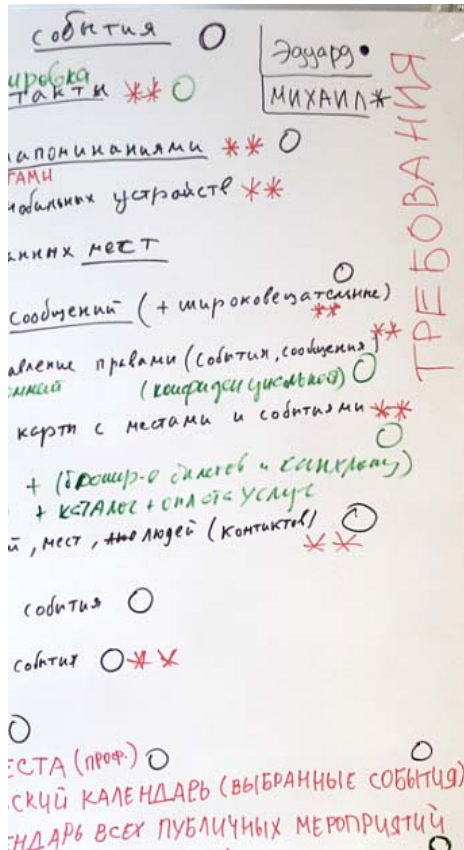 события
Эдуард
ировка
МИХАИЛ*
такты **
ТРЕБОВАНИЯ
апоминаниями **
ТАМИ
мобильных устройств **
анных мест
сообщений (+ широковещательные)
**
авление правами (события, сообщения)
**
(конфиденциальной)
карти с местами и событиями **
+ (брошир-о билетов и
+ каталог + оплата услуг
й, мест, людей (контактов)
**
события
события **
ЕСТА (проф.)
СКИЙ КАЛЕНДАРЬ (ВЫБРАННЫЕ СОБЫТИЯ)
ЕНДАРЬ ВСЕХ ПУБЛИЧНЫХ МЕРОПРИЯТИЙ